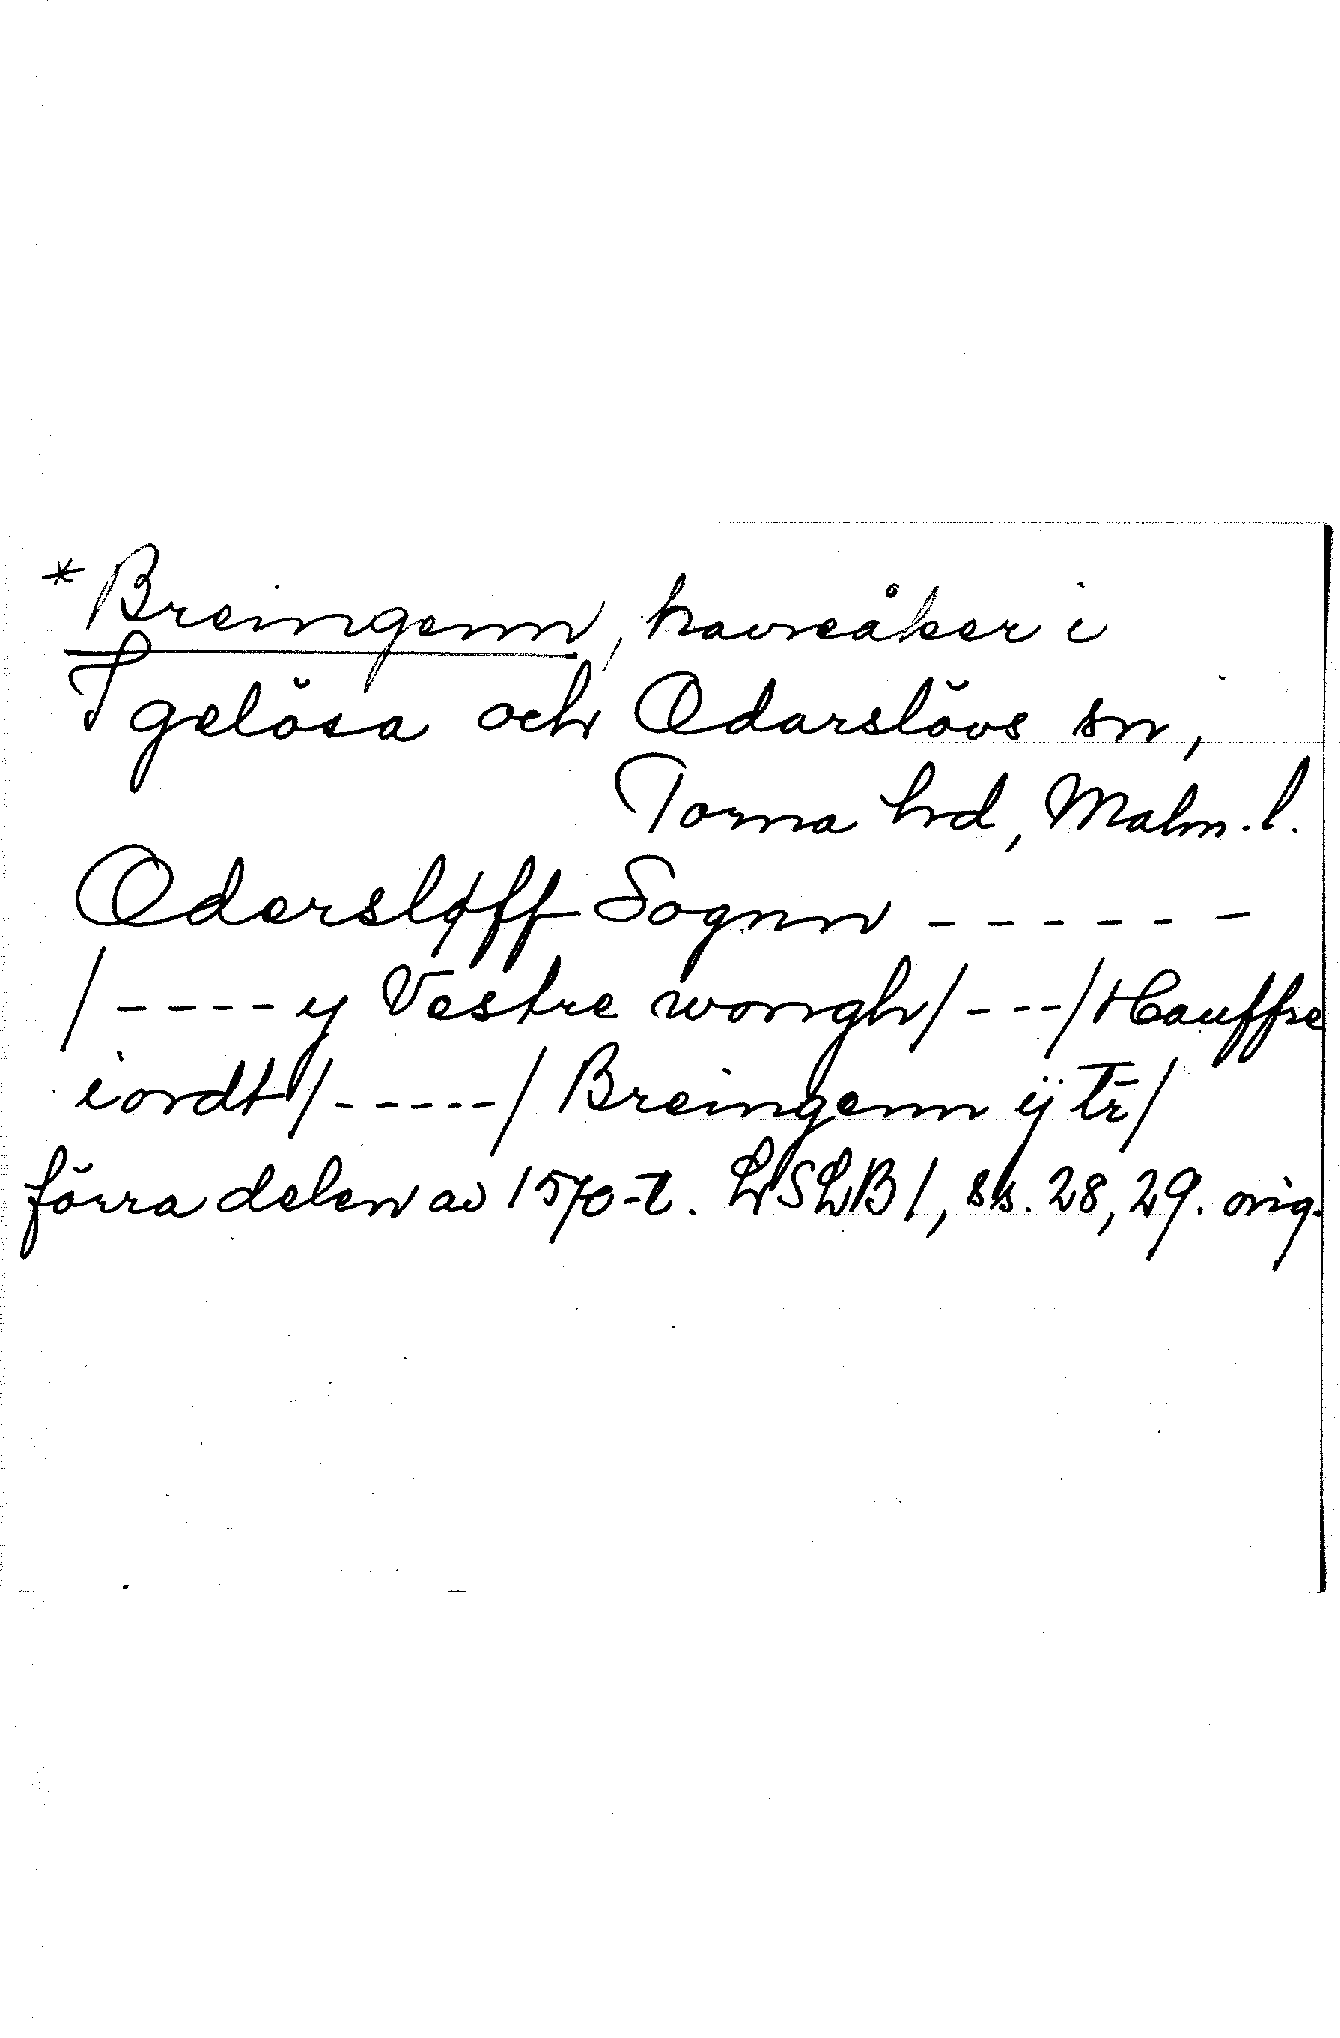 *Breingenn, havreåker i
Igelösa och Odarslövs sn,
Torna hrd, Malm. l.
Odersløff Sognn - - - - - -
/ - - - - y Vestre wongh / - - - / Hauffre
iordt / - - - - - / Breingenn ÿ tr̄ /
förra delen av 1570-t. LSLB 1, ss. 28, 29. orig.